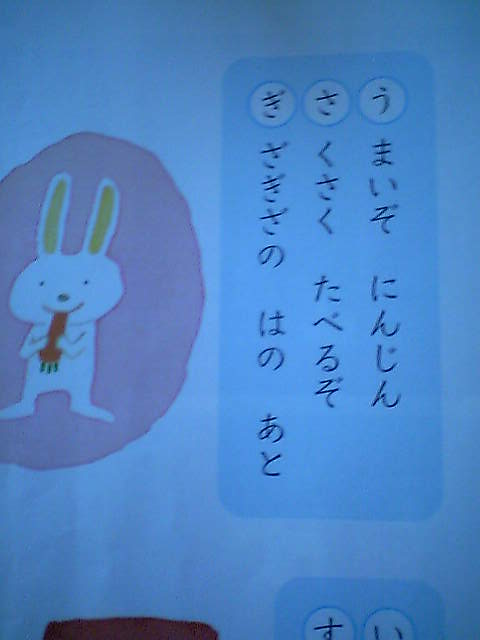 うまいぞ にんじん
さくさく たべるぞ
ぎざぎざの はの あと
い
す